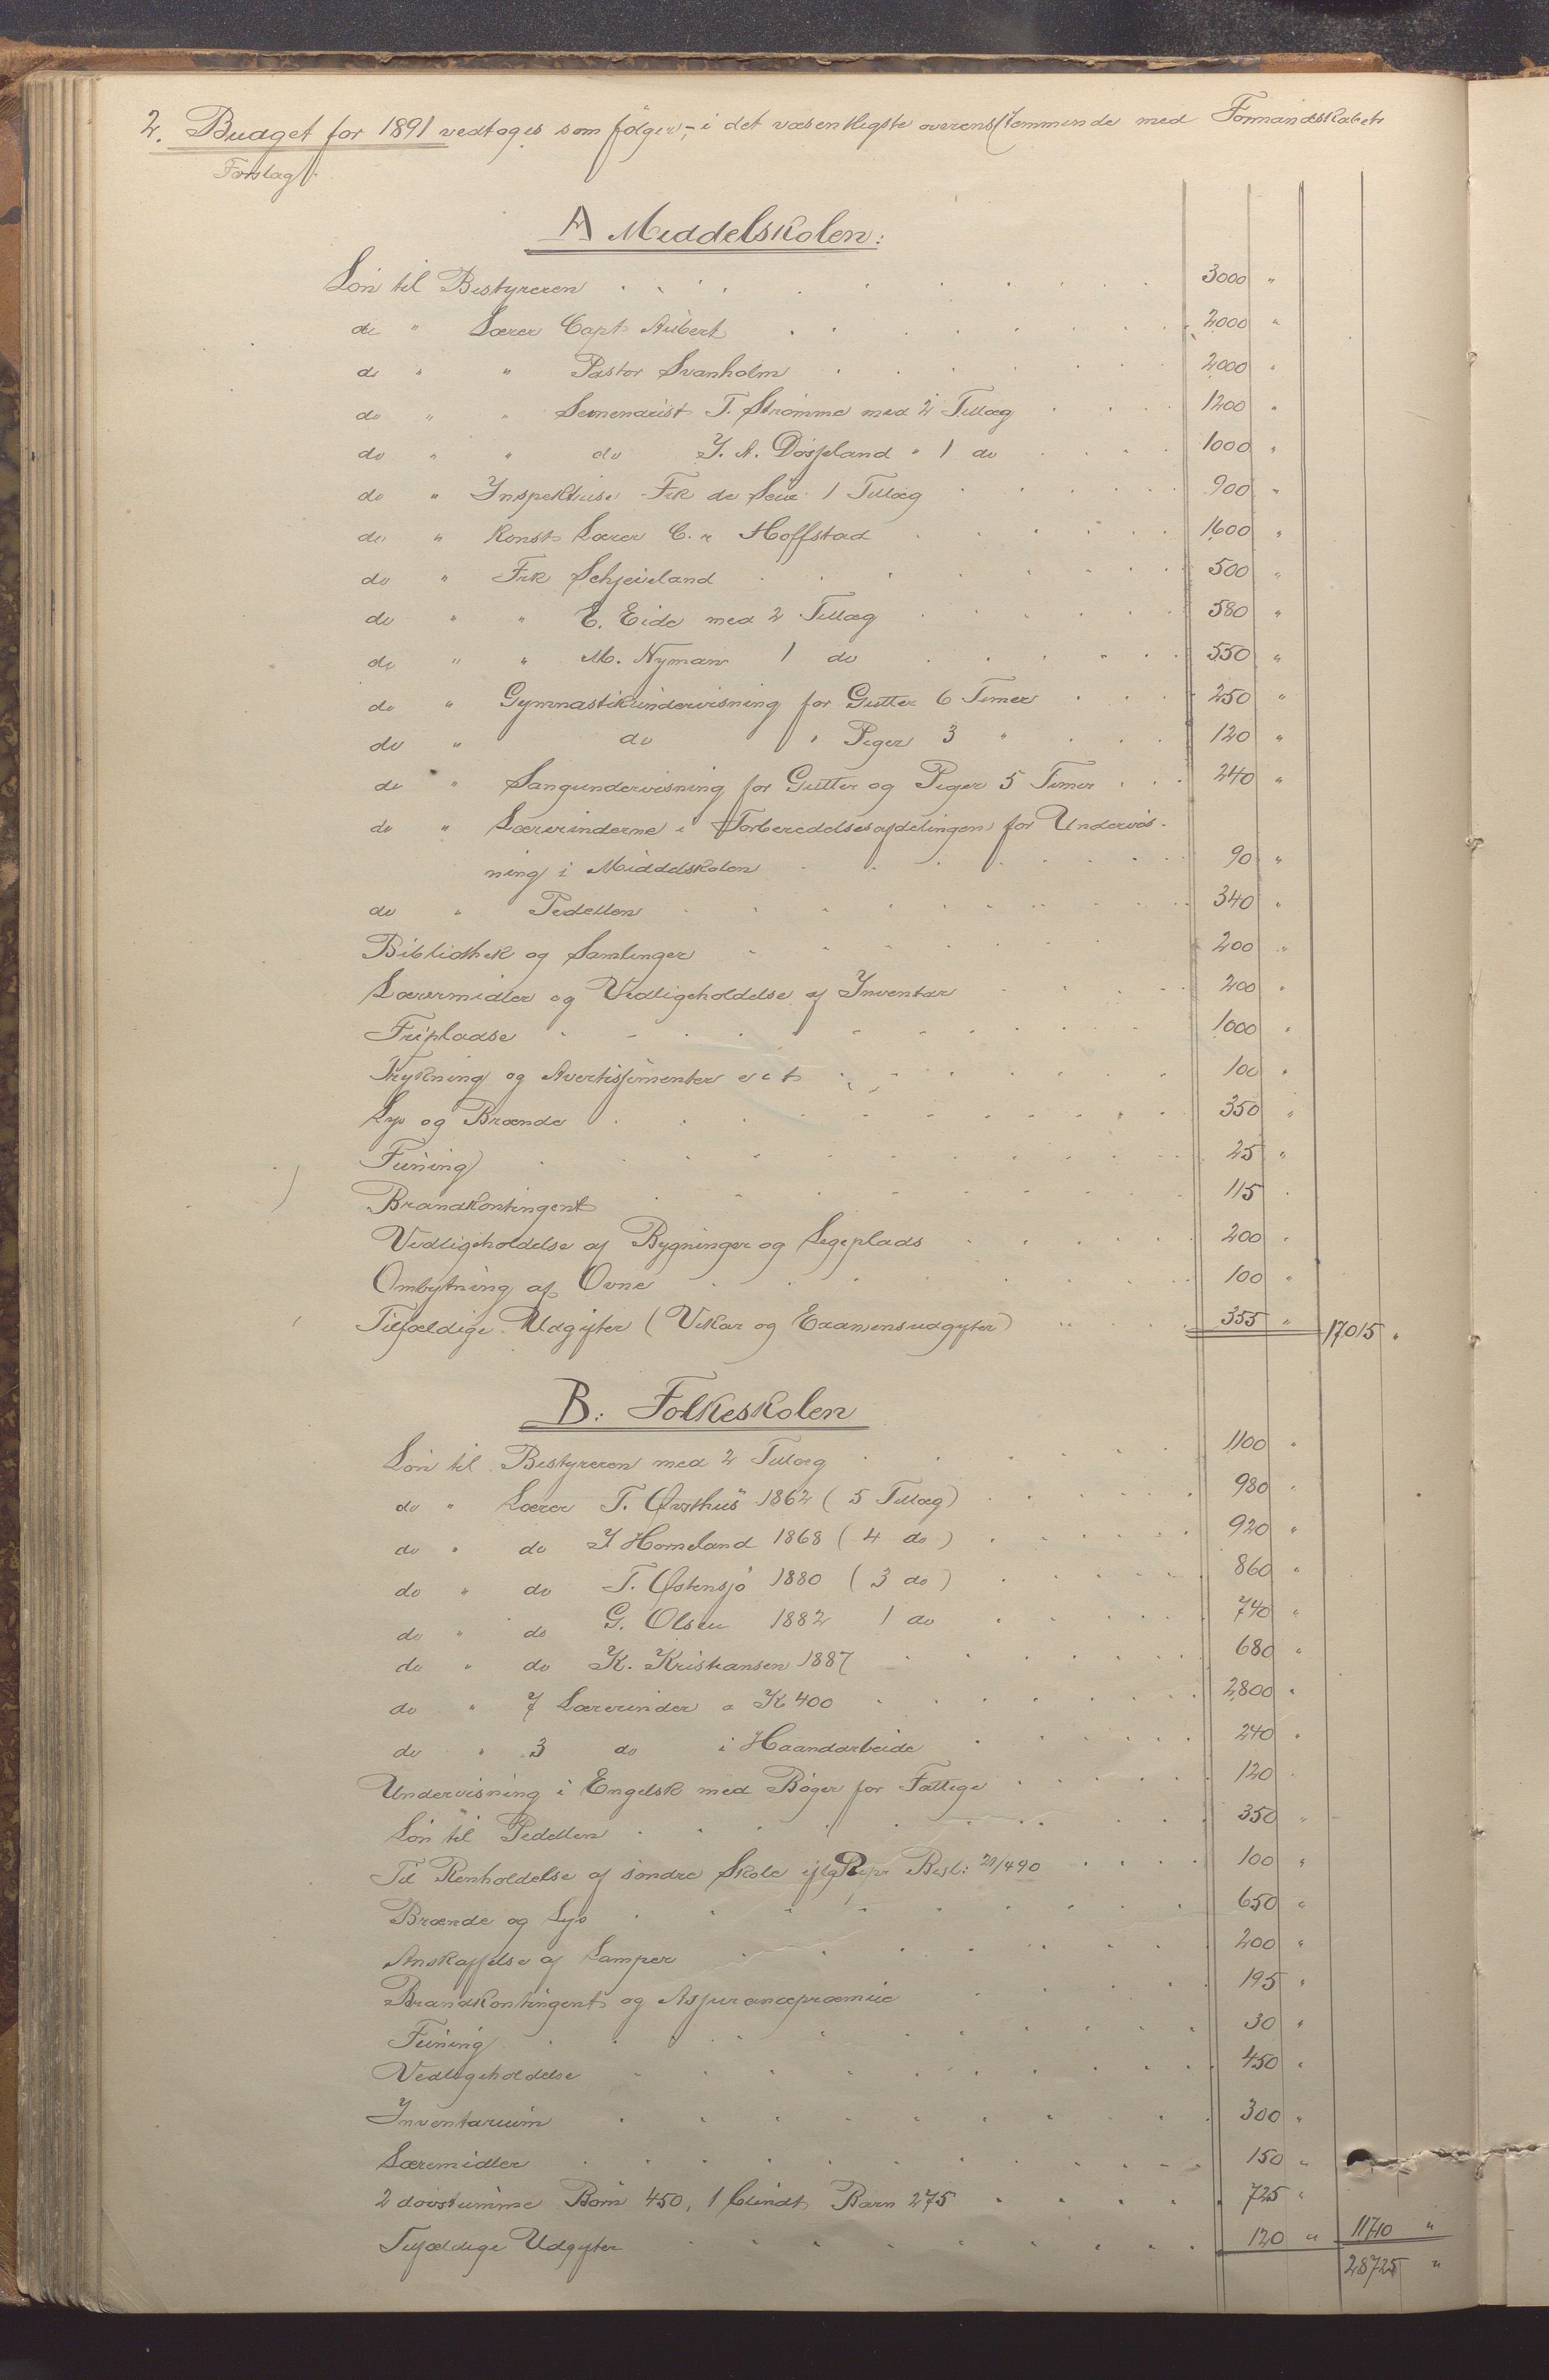 2. Budget for 1891 vedtoges som følger, - i det væsentligste overensstemmende med Formandskabets
Forslag.
A Middelskolen:
Løn til Bestyreren 3000 "
do " Lærer Capt Aubert 2000 "
do " " Pastor Svanholm 2000 "
do " " Semenarist T. Strømme med 2 Tillæg 1200 "
do " " do Y. A. Døsseland " 1 do 1000 "
do " Inspektrise Frk de Seue 1 Tillæg 900 "
do " Konst. Lærer C. Hoffstad 1600 "
do " Frk Schjeveland 500 "
do " " E. Eide med 2 Tillæg 580 "
do " " M. Nyman 1 do 550 "
do " Gymnastikundervisning for Gutter 6 Timer 250 "
do " do " Piger 3 " 120 "
do " Sangundervisning for Gutter og Piger 5 Timer 240 "
do " Lærerinderne i Forberedelsesafdelingen for Undervis-
ning i Middelskolen 90 "
do " Pedellen 340 "
Bibliothek og Samlinger 200 "
Lærermidler og Vedligeholdelse af Inventar 200 "
Fripladse 1000 "
Trykning og Avertissementer etc 100 "
Lys og Brænde 350 "
Feining 25 "
Brandkontingent 115 "
Vedligeholdelse af Bygninger og Legeplads 200 "
Ombytning af Ovne 100 "
Tilfældige Udgifter (Vikar og Examensudgifter) 355 " 17015 "
B: Folkeskolen
Løn til Bestyreren med 2 Tillæg 1100 "
do " Lærer T. Østhus 1862 (5 Tillæg) 980 "
do " do Y Homeland 1868 (4 do) 920 "
do " do T. Østensjø 1880 (3 do) 860 "
do " do G. Olsen 1882 1 do 740 "
do " do K. Kristiansen 1887 680 "
do " 7 Lærerinder a K 400 2800 "
do " 3 do i Haandarbeide 240 "
Undervisning i Engelsk med Bøger for Fattige 120 "
Løn til Pedellen 350 "
Til Renholdelse af søndre Skole iflg Repr. Besl: 20/4 90 100 "
Brænde og Lys 650 "
Anskaffelse af Lamper 200 "
Brandkontingent og Assurancepræmie 195 "
Feining 30 "
Vedligeholdelse 450 "
Inventarium 300 "
Læremidler 150 "
2 døvstumme Børn 450, 1 blindt Barn 275 725 "
Tilfældige Udgifter 120 " 11710 "
28725 "